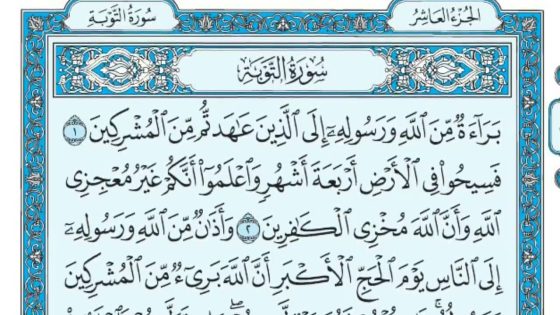 الجزء العاشر
سورة التوبة
سُورَةُ التَّوْبَةِ
بَرَآءَةٌ مِّنَ ٱللَّهِ وَرَسُولِهِۦٓ إِلَى ٱلَّذِينَ عَٰهَدتُّم مِّنَ ٱلْمُشْرِكِينَ ١
فَسِيحُوا۟ فِى ٱلْأَرْضِ أَرْبَعَةَ أَشْهُرٍ وَٱعْلَمُوٓا۟ أَنَّكُمْ غَيْرُ مُعْجِزِى
ٱللَّهِ وَأَنَّ ٱللَّهَ مُخْزِى ٱلْكَٰفِرِينَ ٢ وَأَذَٰنٌ مِّنَ ٱللَّهِ وَرَسُولِهِۦٓ
إِلَى ٱلنَّاسِ يَوْمَ ٱلْحَجِّ ٱلْأَكْبَرِ أَنَّ ٱللَّهَ بَرِىٓءٌ مِّنَ ٱلْمُشْرِكِينَ